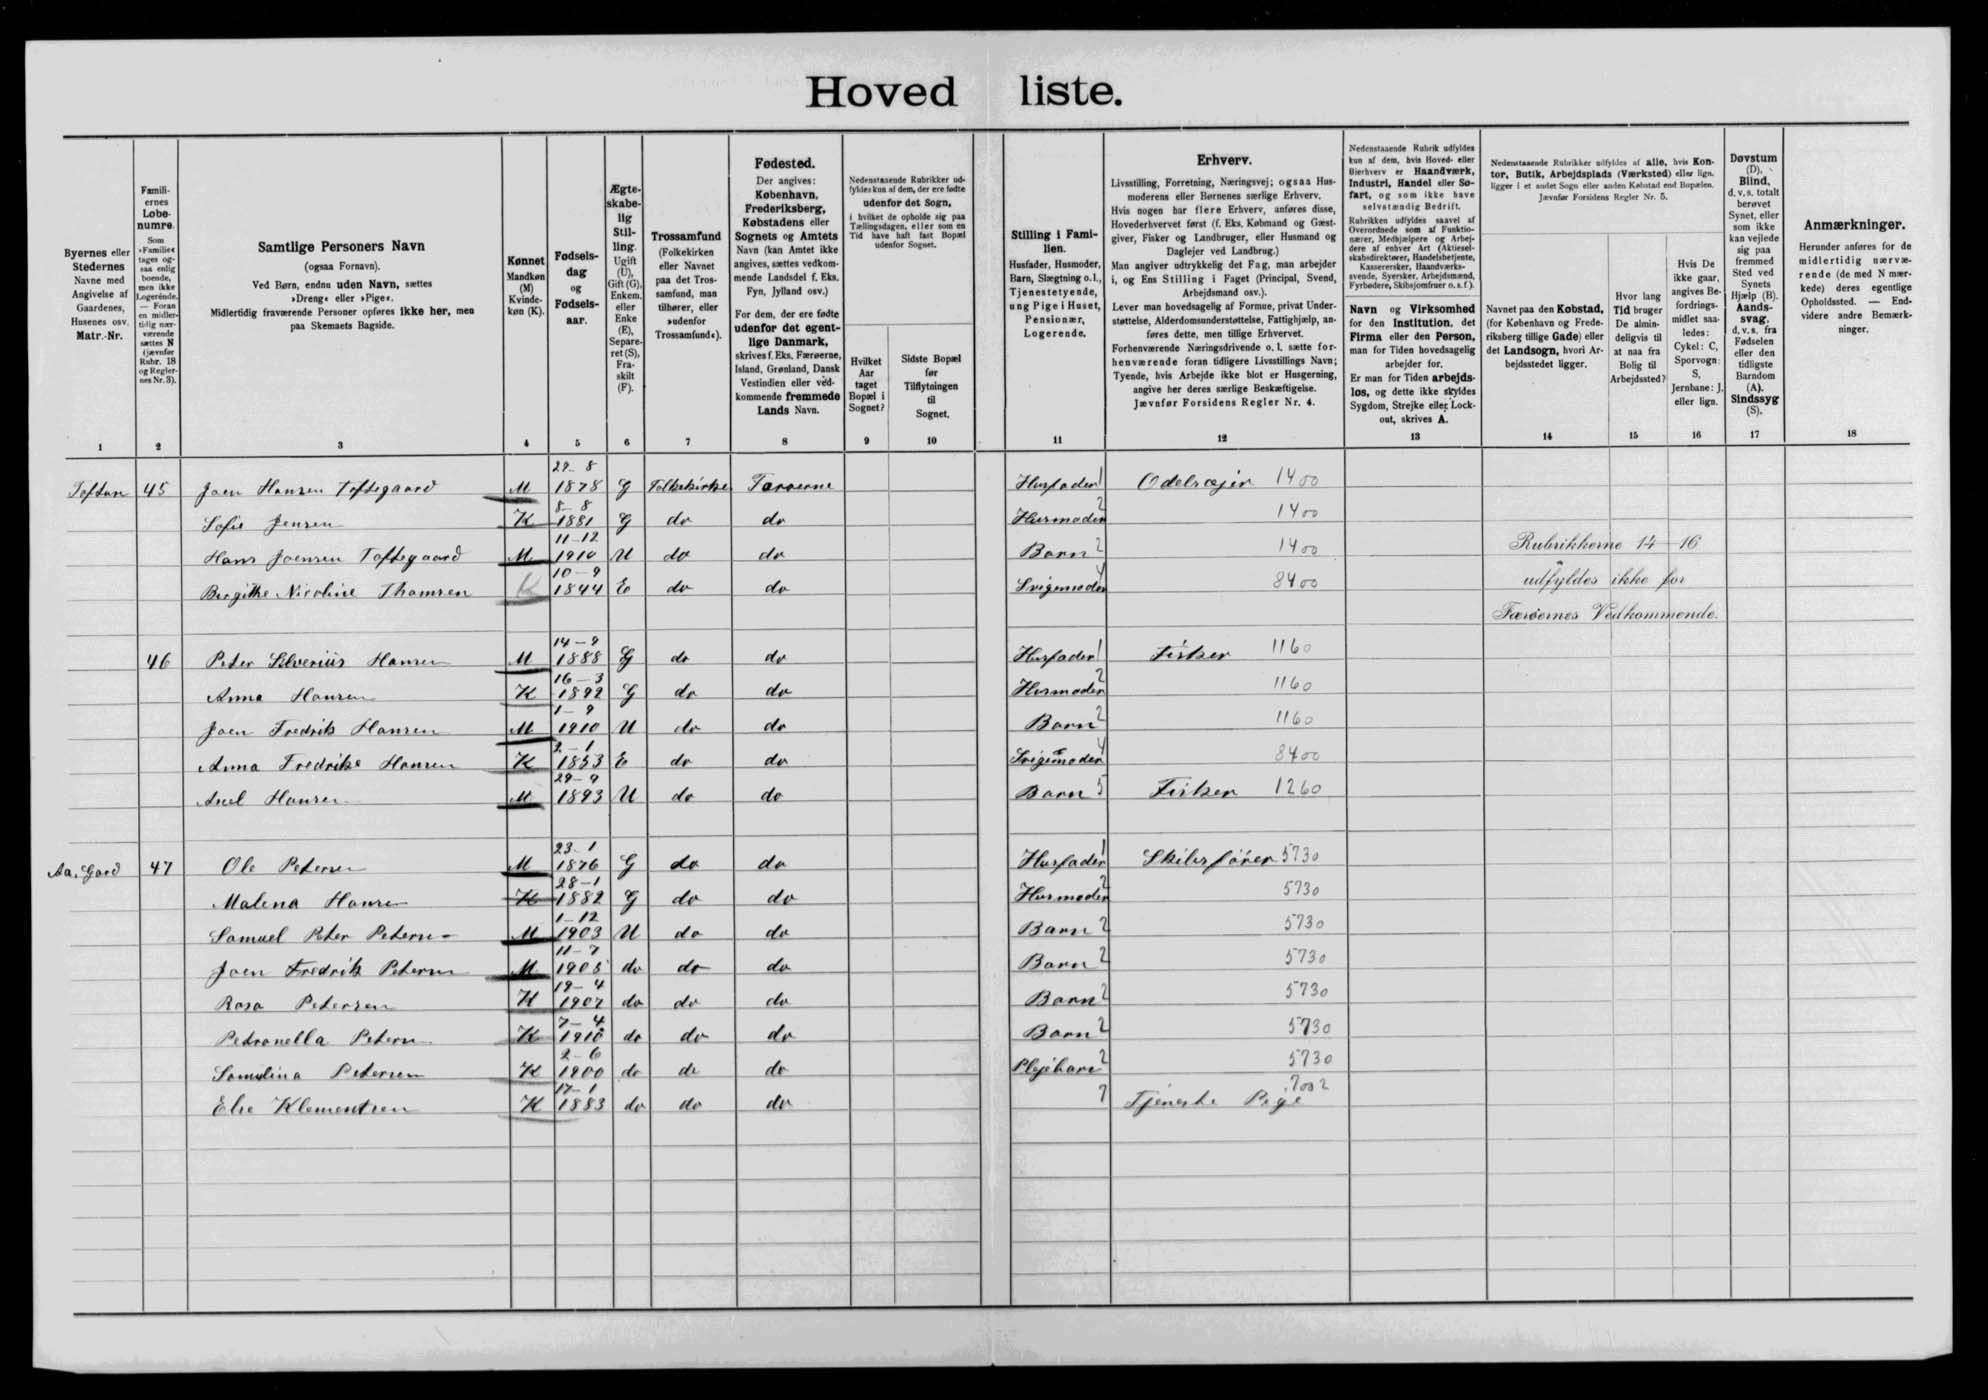 Hovedliste.
Byernes eller Stedernes Navne med Angivelse af Gaardenes, Husenes osv. Matr.-Nr.
Familiernes Løbenumre. Som »Familie« tages ogsaa enlig boende, men ikke Logerende. — Foran en midlertidig nærværende sættes N (jævnfør Rubr. 18 og Reglernes Nr. 3).
Samtlige Personers Navn (ogsaa Fornavn). Ved Børn, endnu uden Navn, sættes »Dreng« eller »Pige«. Midlertidig fraværende Personer opføres ikke her, men paa Skemaets Bagside.
Kønnet Mandkøn (M) Kvindekøn (K).
Fødselsdag og Fødselsaar.
Ægteskabelig Stilling. Ugift (U), Gift (G), Enkem. eller Enke (E), Separeret (S), Fraskilt (F).
Trossamfund (Folkekirken eller Navnet paa det Trossamfund, man tilhører, eller »udenfor Trossamfund«).
Fødested. Der angives: København, Frederiksberg, Købstadens eller Sognets og Amtets Navn (kan Amtet ikke angives, sættes vedkommende Landsdel f. Eks. Fyn, Jylland osv.) For dem, der ere fødte udenfor det egentlige Danmark, skrives f. Eks. Færøerne, Island, Grønland, Dansk Vestindien eller vedkommende fremmede Lands Navn.
Nedenstaaende Rubrikker udfyldes kun af dem, der ere fødte udenfor det Sogn, i hvilket de opholde sig paa Tællingsdagen, eller som en Tid have haft fast Bopæl udenfor Sognet.
Hvilket Aar taget Bopæl i Sognet?
Sidste Bopæl før Tilflytningen til Sognet.
Stilling i Familien. Husfader, Husmoder, Barn, Slægtning o. l., Tjenestetyende, ung Pige i Huset, Pensionær, Logerende.
Erhverv. Livsstilling, Forretning, Næringsvej; ogsaa Husmoderens eller Børnenes særlige Erhverv. Hvis nogen har flere Erhverv, anføres disse, Hovederhvervet først (f. Eks. Købmand og Gæstgiver, Fisker og Landbruger, eller Husmand og Daglejer ved Landbrug.) Man angiver udtrykkelig det Fag, man arbejder i, og Ens Stilling i Faget (Principal, Svend, Arbejdsmand osv.). Lever man hovedsagelig af Formue, privat Understøttelse, Alderdomsunderstøttelse, Fattighjælp, anføres dette, men tillige Erhvervet. Forhenværende Næringsdrivende o. l. sætte forhenværende foran tidligere Livsstillings Navn; Tyende, hvis Arbejde ikke blot er Husgerning, angive her deres særlige Beskæftigelse. Jævnfør Forsidens Regler Nr. 4.
Nedenstaaende Rubrik udfyldes kun af dem, hvis Hoved- eller Bierhverv er Haandværk, Industri, Handel eller Søfart, og som ikke have selvstændig Bedrift. Rubrikken udfyldes saavel af Overordnede som af Funktionærer, Medhjælpere og Arbejdere af enhver Art (Aktieselskabsdirektører, Handelsbetjente, Kasserersker, Haandværkssvende, Syersker, Arbejdsmænd, Fyrbødere, Skibsjomfruer o. s. f.).
Navn og Virksomhed for den Institution, det Firma eller den Person, man for Tiden hovedsagelig arbejder for. Er man for Tiden arbejdsløs, og dette ikke skyldes Sygdom, Strejke eller Lockout, skrives A.
Nedenstaaende Rubrikker udfyldes af alle, hvis Kontor, Butik, Arbejdsplads (Værksted) eller lign. ligger i et andet Sogn eller anden Købstad end Bopælen. Jævnfør Forsidens Regler Nr. 5.
Navnet paa den Købstad, (for København og Frederiksberg tillige Gade) eller det Landsogn, hvori Arbejdsstedet ligger.
Hvor lang Tid bruger De almindeligvis til at naa fra Bolig til Arbejdssted?
Hvis De ikke gaar, angives Befordringsmidlet saaledes: Cykel: C, Sporvogn: S, Jernbane: J, eller lign.
Døvstum (D), Blind, d. v. s. totalt berøvet Synet, eller som ikke kan vejlede sig paa fremmed Sted ved Synets Hjælp (B). Aandssvag, d. v. s. fra Fødselen eller den tidligste Barndom (A). Sindssyg (S).
Anmærkninger. Herunder anføres for de midlertidig nærværende (de med N mærkede) deres egentlige Opholdssted. — Endvidere andre Bemærkninger.
1 2 3 4 5 6 7 8 9 10 11 12 13 14 15 16 17 18
Toftum 45 Joen Hansen Toftegaard M 29-8 1878 G Folkekirke Færøerne Husfader 1 Odelsejer 1400
Sofie Jensen K 8-8 1881 G do do Husmoder 2 1400
Hans Joensen Toftegaard M 11-12 1910 U do do Barn 2 1400
Birgithe Nicoline Thomsen K 10-9 1844 E do do Svigemoder 4 8400
Rubrikkerne 14-16
udfyldes ikke for
Færøernes Vedkommende.
46 Peter Silverius Hansen M 14-9 1888 G do do Husfader 1 Fisker 1160
Anna Hansen K 16-3 1892 G do do Husmoder 2 1160
Joen Fredrik Hansen M 1-9 1910 U do do Barn 2 1160
Anna Fredrike Hansen K 2-1 1853 E do do Svigemoder 4 8400
Axel Hansen M 29-9 1893 U do do Barn 5 Fisker 1260
Aa, Gard 47 Ole Petersen M 23-1 1876 G do do Husfader 1 Skibsfører 5730
Malena Hansen K 28-1 1882 G do do Husmoder 2 5730
Samuel Peter Petersen M 1-12 1903 U do do Barn 2 5730
Joen Fredrik Petersen M 11-7 1905 do do do Barn 2 5730
Rosa Petersen K 19-4 1907 do do do Barn 2 5730
Petronella Petersen K 7-4 1910 do do do Barn 2 5730
Samulina Petersen K 2-6 1900 do do do Plejebarn 2 5730
Else Klementsen K 17-1 1883 do do do 7 Tjeneste Pige 7002